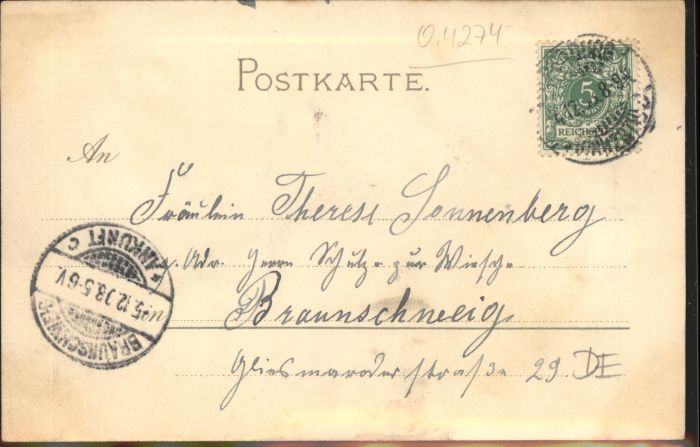 0.4274
POSTKARTE.
5
REICHSPOST
An
Fräulein Therese Sonnenberg
Adr. Herrn Schulz - zur Wiesche
Braunschweig
Gliesmaroderstraße 29. DE
BRAUNSCHWEIG
15.12.98.5-6V.
* ANKUNFT C *